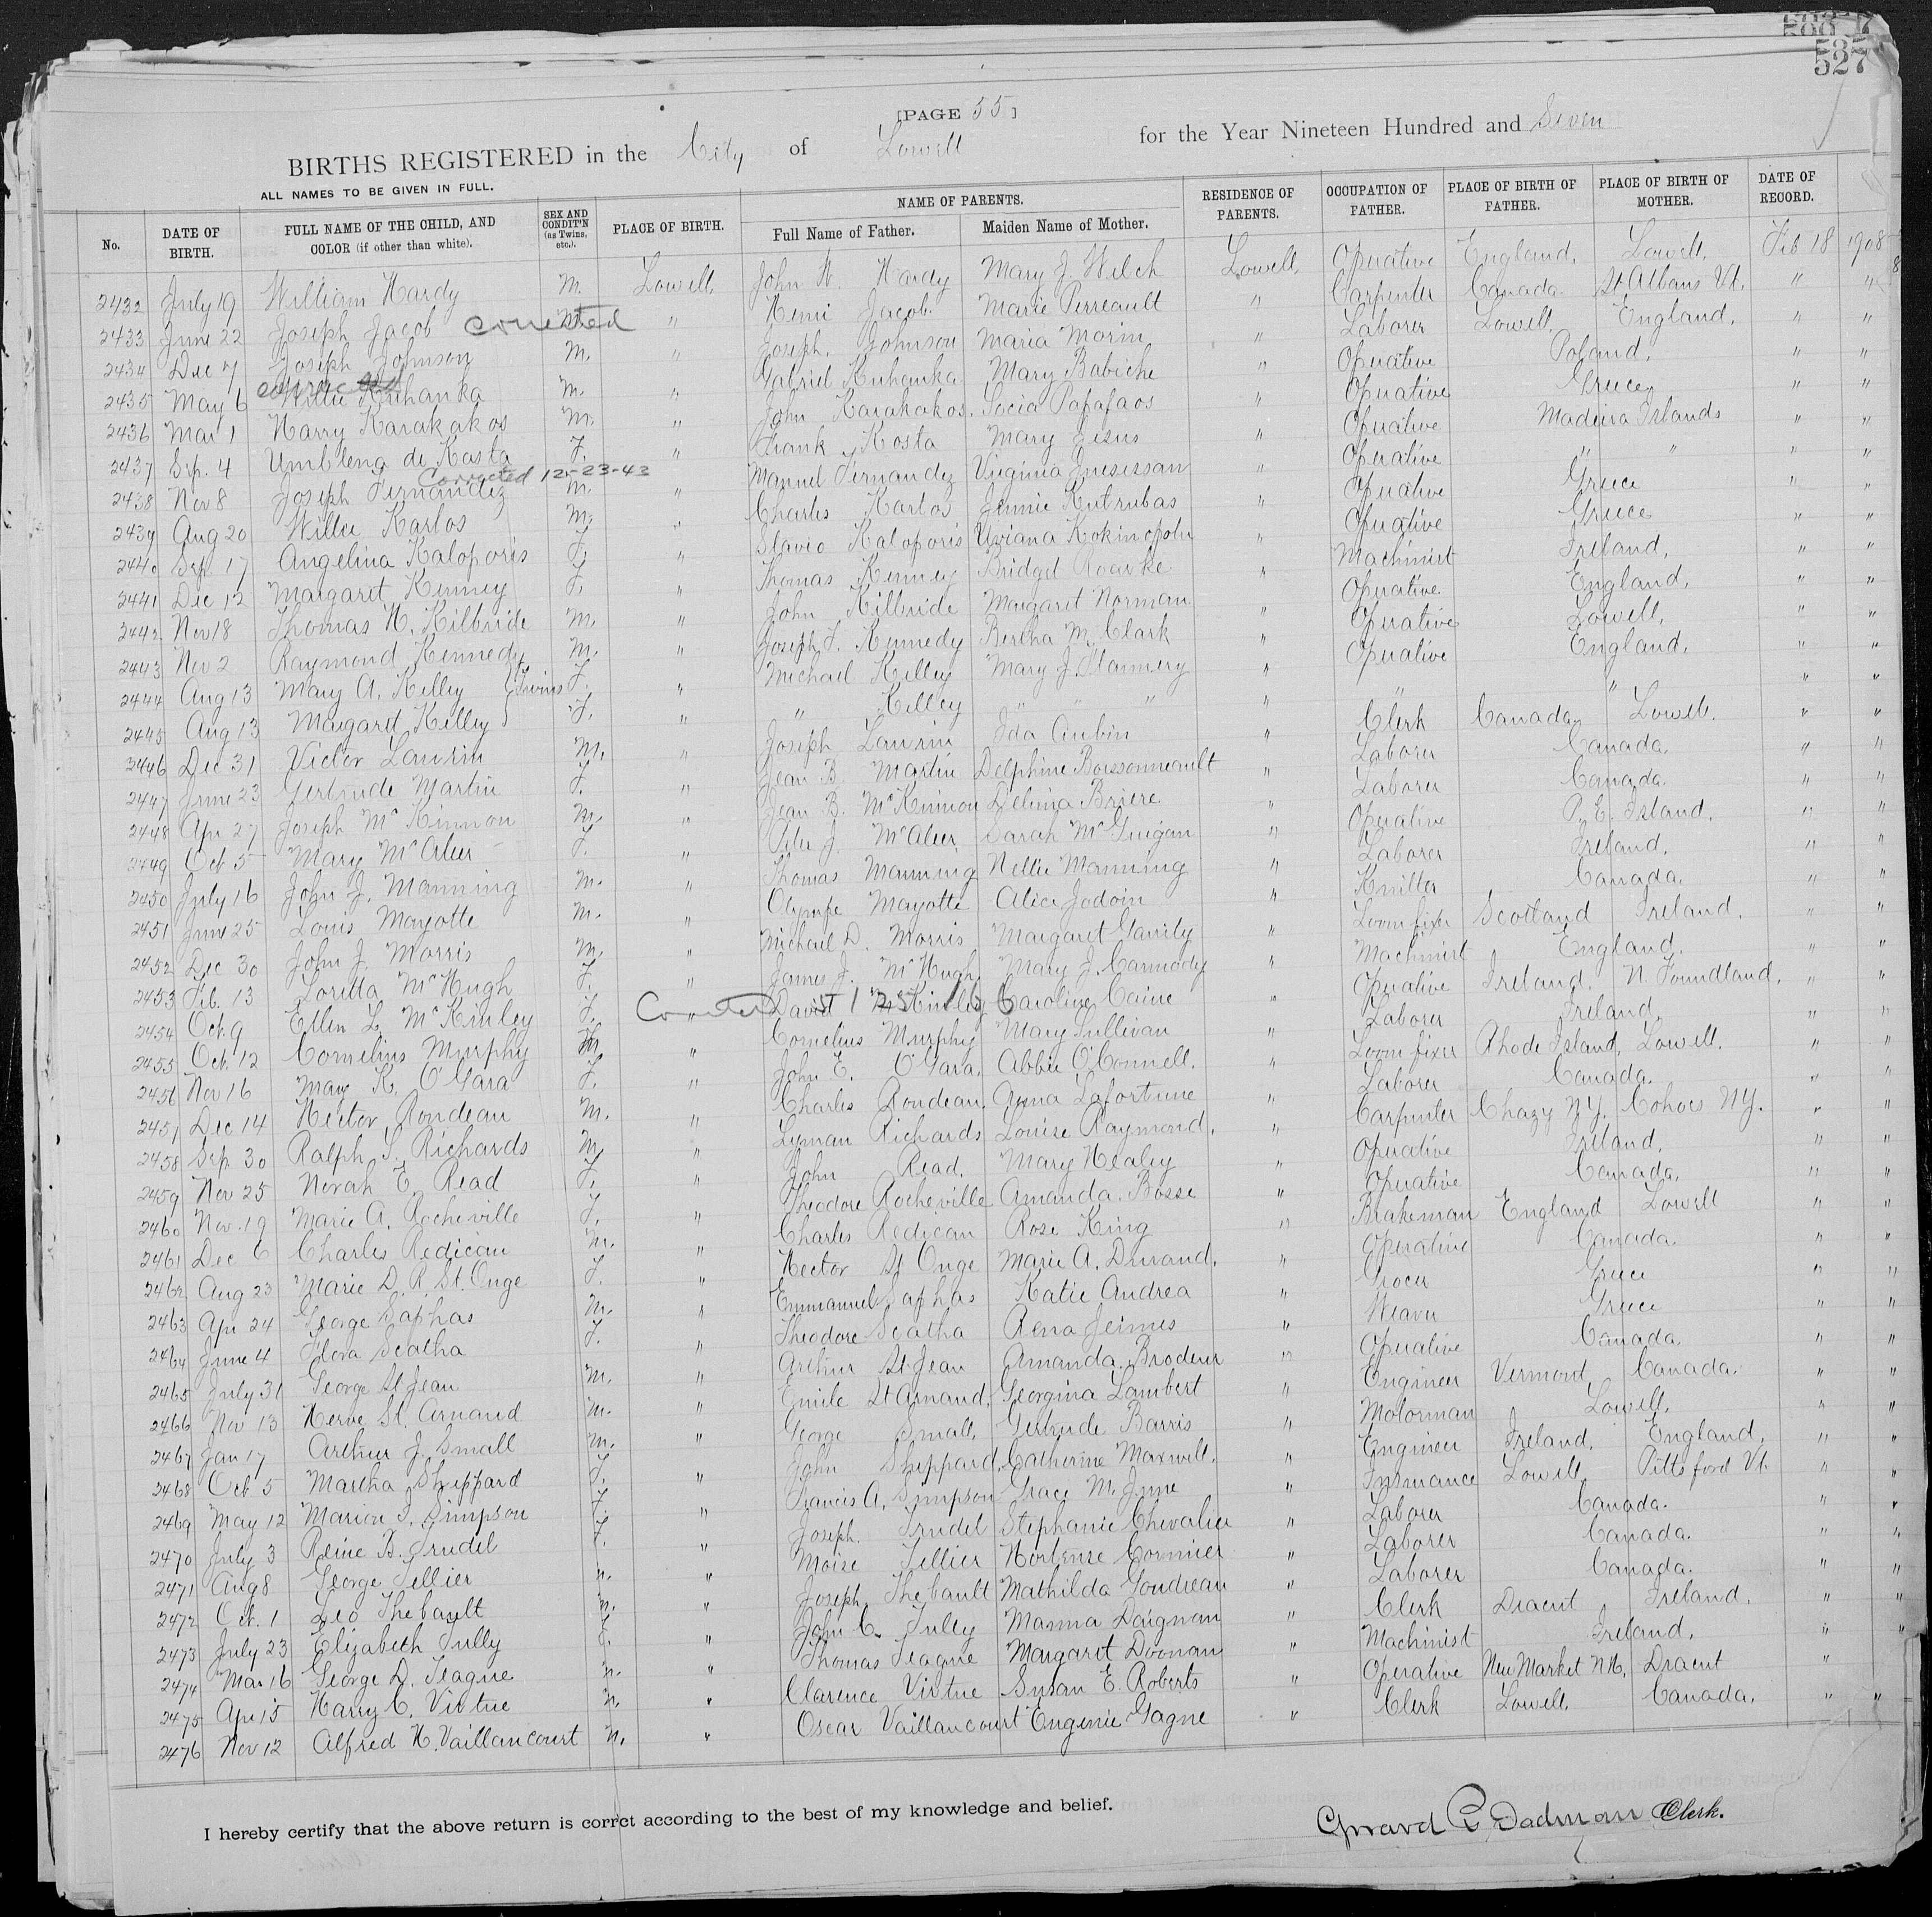 527
[PAGE 55]
BIRTHS REGISTERED in the City of Lowell for the Year Nineteen Hundred and Seven
ALL NAMES TO BE GIVEN IN FULL.
No. DATE OF BIRTH. FULL NAME OF THE CHILD, AND COLOR (if other than white). SEX AND CONDIT'N (as Twins, etc.). PLACE OF BIRTH. NAME OF PARENTS. Full Name of Father. Maiden Name of Mother. RESIDENCE OF PARENTS. OCCUPATION OF FATHER. PLACE OF BIRTH OF FATHER. PLACE OF BIRTH OF MOTHER. DATE OF RECORD.
2432 July 19 William Hardy M. Lowell, John H. Hardy Mary J. Welch Lowell, Operative England, Lowell, Feb 18 1908
2433 June 22 Joseph Jacob corrected M. " Henri Jacob. Marie Perreault " Carpenter Canada St Albans Vt. " "
2434 Dec 7 Joseph Johnson M. " Joseph Johnson Maria Morin " Laborer Lowell, England, " "
2435 May 6 Willie Kuhanka corrected M. " Gabriel Kuhanka Mary Babiche " Operative Poland, " "
2436 Mar 1 Harry Karakakos M. " John Karakakos, Socia Papafaos " Operative Greece, " "
2437 Sep. 4 Umbleng de Kosta F. " Frank Kosta Mary Jesus " Operative Madeira Islands " "
Corrected 12-23-43
2438 Nov 8 Joseph Fernandez M. " Manuel Fernandez Virginia " Operative " " " "
2439 Aug 20 Willie Karlos M. " Charles Karlos Jennie Kutrubas " Operative Greece " "
2440 Sep. 17 Angelina Kaloporis F. " Slavio Kaloporis Uviana " Operative Greece " "
2441 Dec 12 Margaret Kenney F. " Thomas Kenney Bridget Roarke " Machinist Ireland, " "
2442 Nov 18 Thomas H. Kilbride M. " John Kilbride Margaret Norman " Operative England, " "
2443 Nov 2 Raymond Kennedy M. " Joseph F. Kennedy Bertha M. Clark " Operative Lowell, " "
2444 Aug 13 Mary A. Kelley } Twins F. " Michael Kelley Mary J. Flannery " Operative England, " "
2445 Aug 13 Margaret Kelley } F. " " Kelley " " " " " " " "
2446 Dec 31 Victor Laurin M. " Joseph Laurin Ida Aubin " Clerk Canada, Lowell. " "
2447 June 23 Gertrude Martin F. " Jean B. Martin Delphine Boissonneault " Laborer Canada, " "
2448 Apr 27 Joseph McKinnon M. " Jean B. McKinnon Delima Briere " Laborer Canada. " "
2449 Oct 5 Mary McAleer F. " Peter J. McAleer, Sarah McGuigan " Operative P. E. Island, " "
2450 July 16 John J. Manning M. " Thomas Manning Nellie Manning " Laborer Ireland, " "
2451 June 25 Louis Mayotte M. " Olympe Mayotte Alice Jodoin " Knitter Canada, " "
2452 Dec 30 John J. Morris M. " Michael D. Morris Margaret Garity " Loom fixer Scotland Ireland, " "
2453 Feb. 13 Loretta McHugh F. " James J. McHugh Mary J. Carmody " Machinist England. " "
2454 Oct. 9 Ellen L. McKinley F. " Corrected David McKinley Caroline Caine " Operative Ireland, N. Foundland, " "
2455 Oct. 12 Cornelius Murphy M. " Cornelius Murphy Mary Sullivan " Laborer Ireland, " "
2456 Nov 16 Mary K. O'Gara F. " John E. O'Gara, Abbie O'Connell. " Loom fixer Rhode Island, Lowell. " "
2457 Dec 14 Hector Rondeau M. " Charles Rondeau, Anna Lafortune " Laborer Canada. " "
2458 Sep. 30 Ralph S. Richards M. " Lyman Richards Louise Raymond, " Carpenter Chazy N.Y. Cohoes N.Y. " "
2459 Nov 25 Norah E. Read F. " John Read, Mary Healey " Operative Ireland, " "
2460 Nov. 19 Marie A. Rocheville F. " Theodore Rocheville Amanda Bosse " Operative Canada, " "
2461 Dec 6 Charles Redican M. " Charles Redican Rose King " Brakeman England Lowell " "
2462 Aug 23 Marie D. R. St. Onge F. " Hector St Onge Marie A. Durand, " Operative Canada " "
2463 Apr 24 George Saphas M. " Emmanuel Saphas Katie Andrea " Grocer Greece " "
2464 June 4 Flora Scatha F. " Theodore Scatha Rena Jeimes " Weaver Greece " "
2465 July 31 George St. Jean M. " Arthur St. Jean Amanda Brodeur " Operative Canada " "
2466 Nov 13 Herve St. Arnaud M. " Emile St Arnaud, Georgina Lambert " Engineer Vermont Canada. " "
2467 Jan 17 Arthur J. Small M. " George Small, Gertrude Barris " Motorman Lowell, " "
2468 Oct. 5 Martha Sheppard F. " John Sheppard, Catherine Maxwell. " Engineer Ireland, England, " "
2469 May 12 Marion F. Simpson F. " Francis A. Simpson Grace M. June " Insurance Lowell, Pittsford Vt. " "
2470 July 3 Reine B. Trudel F. " Joseph. Trudel Stephanie Chevalier " Laborer Canada. " "
2471 Aug 8 George Tellier M. " Moise Tellier Hortense Cormier " Laborer Canada. " "
2472 Oct. 1 Leo Thebault M. " Joseph Thebault Mathilda Goudreau " Laborer Canada. " "
2473 July 23 Elizabeth Tully F. " John C. Tully Manna Daignan " Clerk Dracut Ireland, " "
2474 Mar 16 George D. Teague M. " Thomas Teague Margaret Doonan " Machinist Ireland, " "
2475 Apr 15 Harry C. Virtue M. " Clarence Virtue Susan E. Roberts " Operative New Market N.H. Dracut "
2476 Nov 12 Alfred H. Vaillancourt M. " Oscar Vaillancourt Eugenie Gagne " Clerk Lowell, Canada, " "
I hereby certify that the above return is correct according to the best of my knowledge and belief.
Girard P. Dadman Clerk.